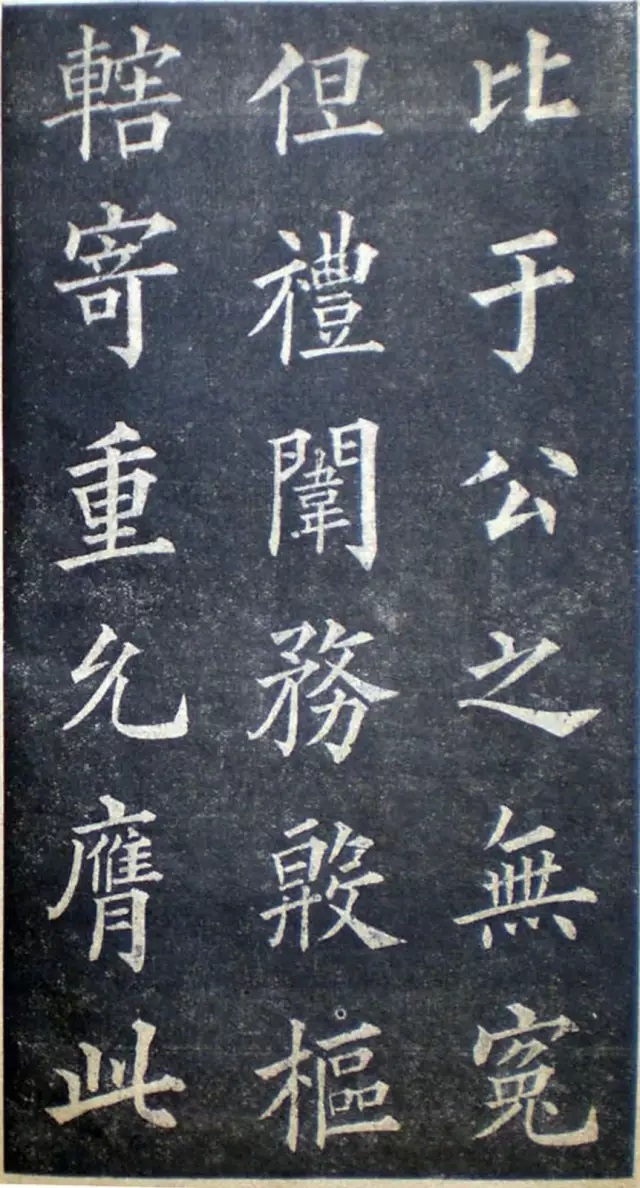 比于公之無冤
但禮闈務殷樞
轄寄重允膺此